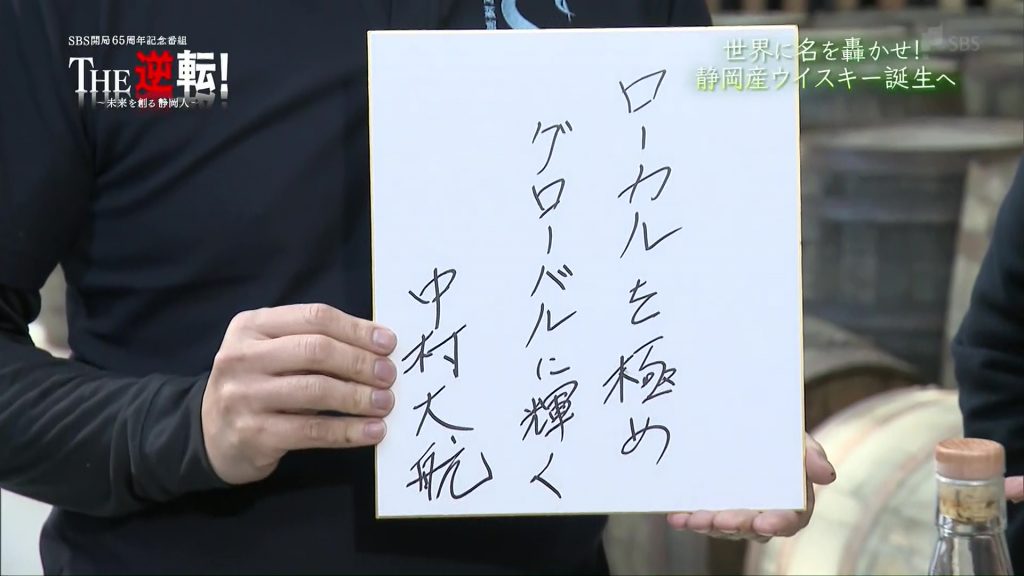 SBS開局65周年記念番組
THE逆転!
~未来を創る静岡人~
世界に名を轟かせ!
静岡産ウイスキー誕生へ
SBS
ローカルを極め
グローバルに輝く
中村大航